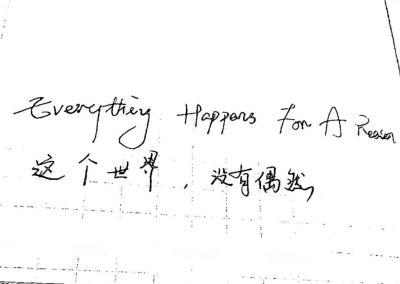 Everything Happens For A Reason
这个世界，没有偶然